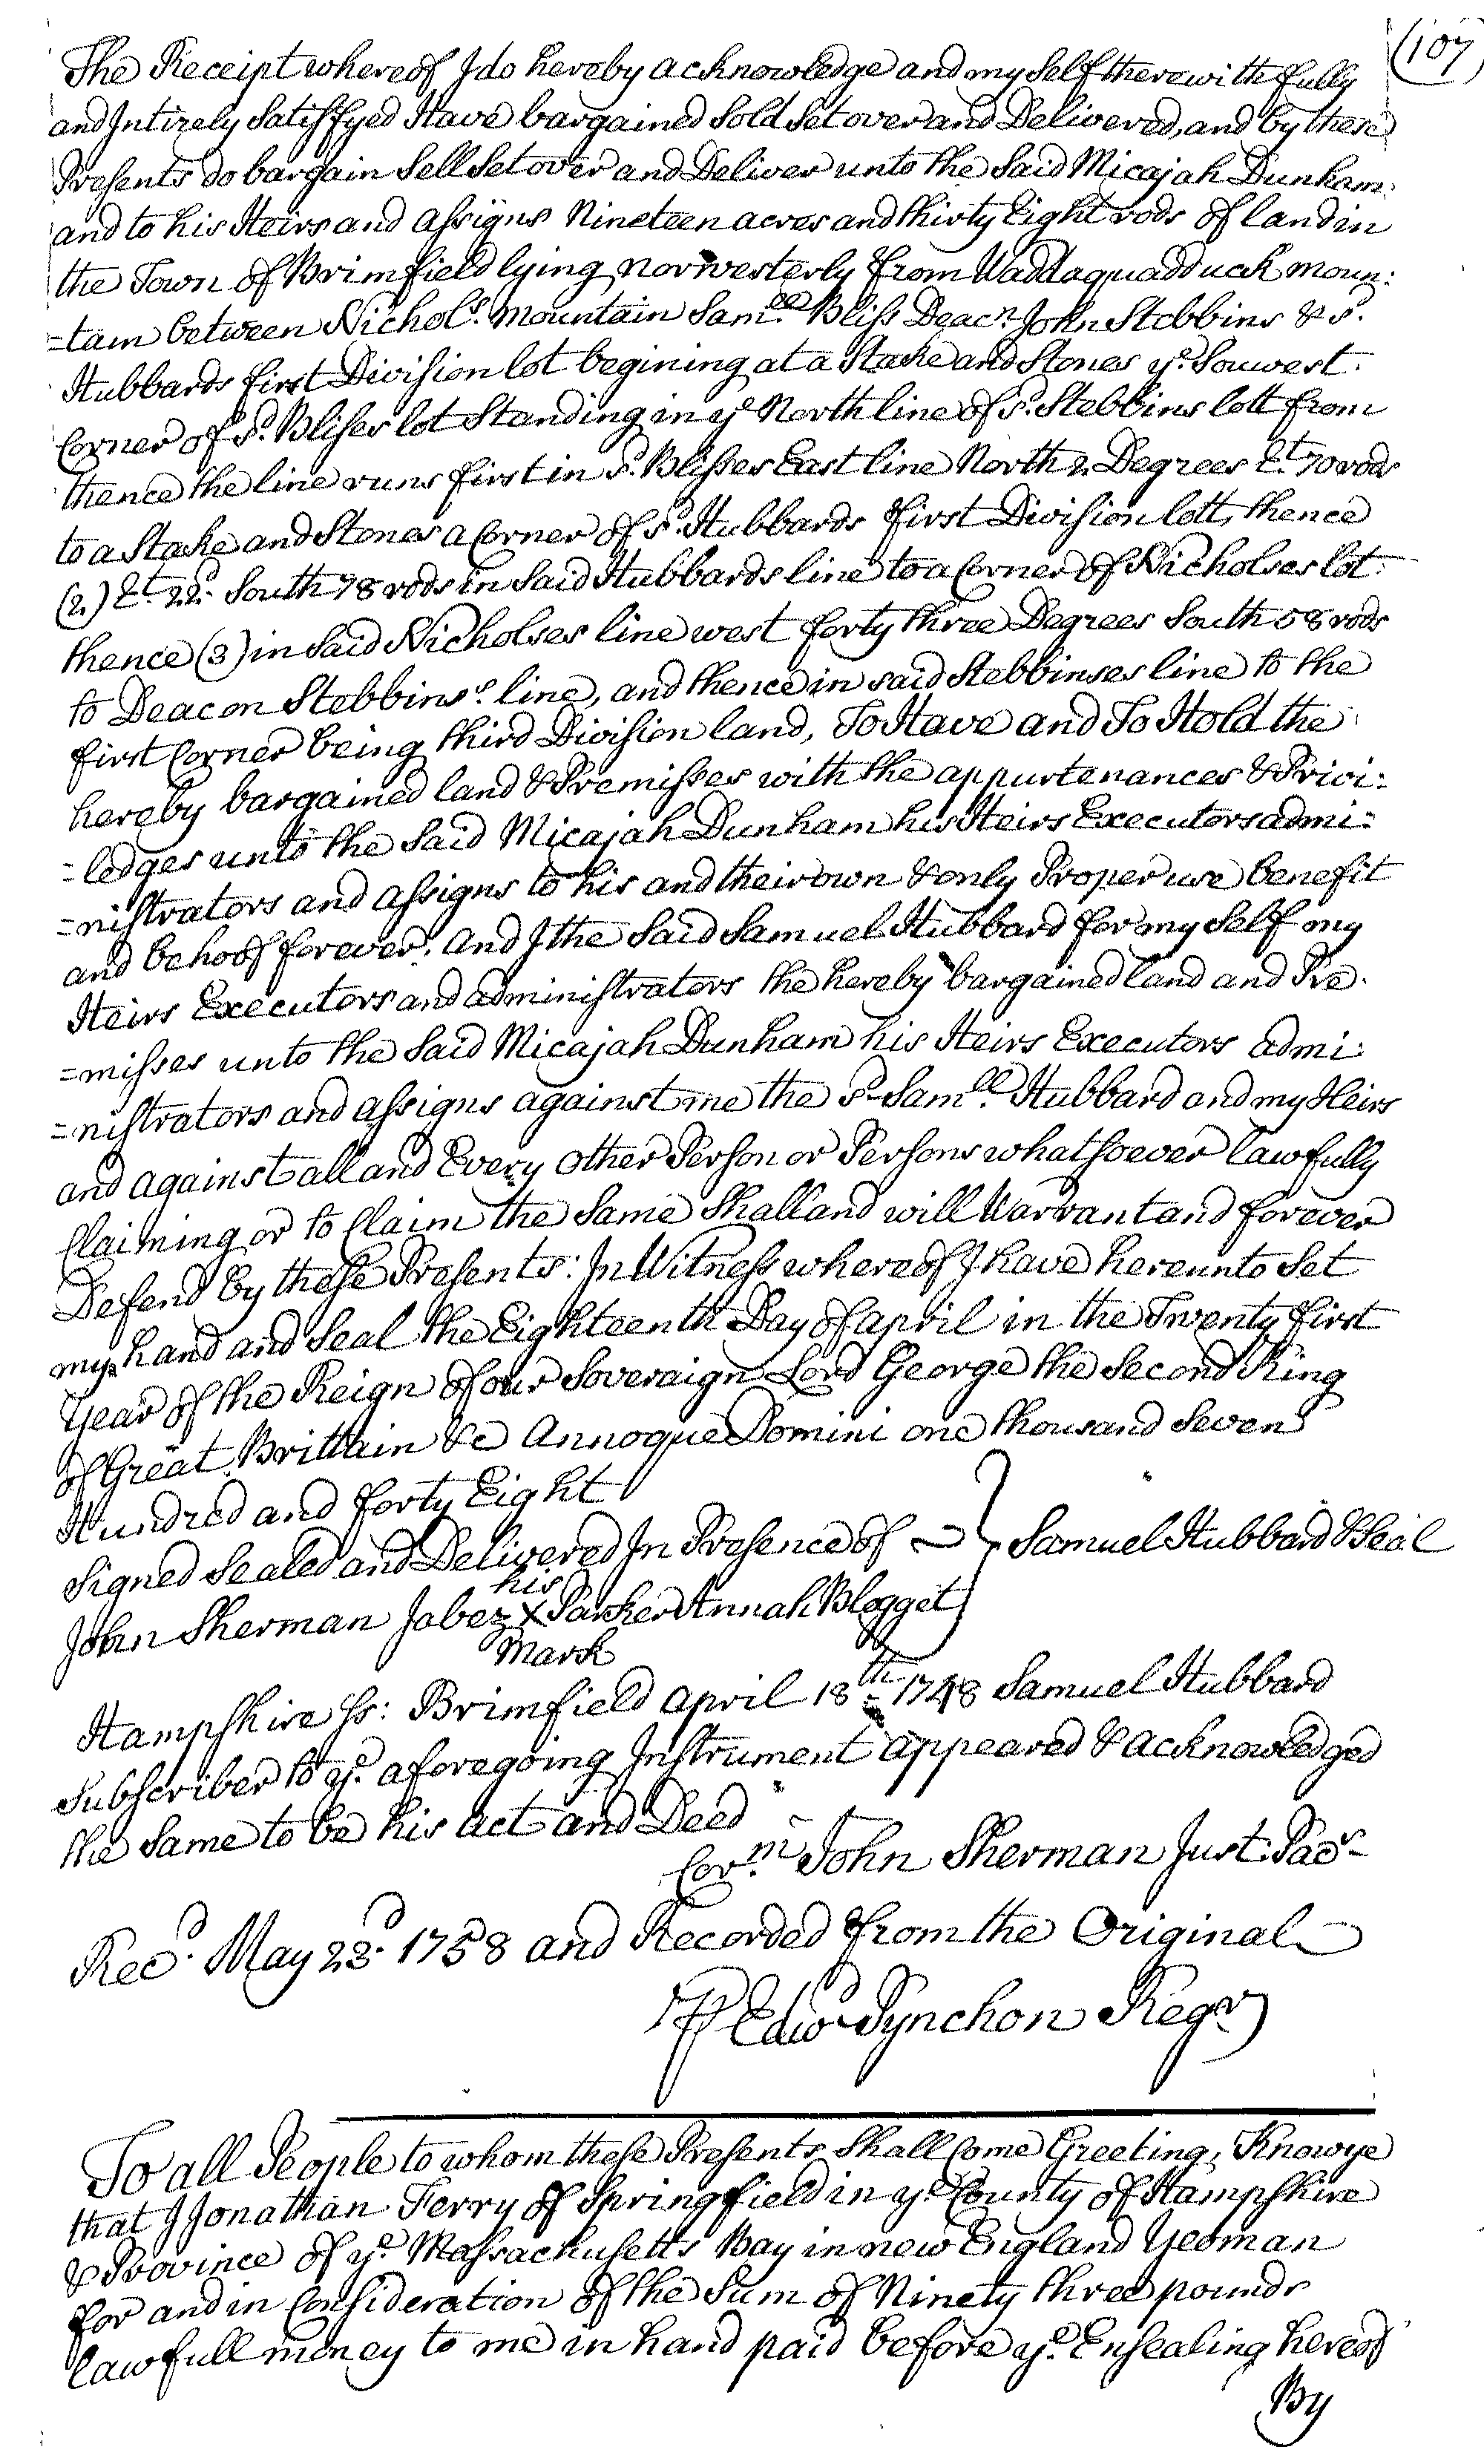 (107
The Receipt whereof I do hereby acknowledge and my Self therewith fully
and Intirely Satisfyed Have bargained Sold Set over and Delivered, and by these
Presents do bargain Sell Set over and Deliver unto the Said Micajah Dunham
and to his Heirs and assigns Nineteen acres and thirty Eight rods of land in
the Town of Brimfield lying norwesterly from Waddaquadduck moun:
=tain between Nichols. mountain Sam.ll Bliss Deac.n John Stebbins & s.d
Hubbards first Division lot begining at a Stake and Stones y.e Souwest
Corner of s.d Blisses lot Standing in y.e North line of s.d Stebbins lott from
thence the line runs first in s.d Blisses East line North 2 Degrees E.t 70 rods
to a Stake and Stones a Corner of s.d Hubbards first Division lott, thence
(2.) E.t 22.d South 78 rods in Said Hubbards line to a Corner of Nicholses lot
thence (3) in Said Nicholses line west forty three Degrees South 58 rods
to Deacon Stebbins.s line, and thence in said Stebbinses line to the
first Corner being third Division land, To Have and To Hold the
hereby bargained land & Premisses with the appurtenances & Privi:
=ledges unto the Said Micajah Dunham his Heirs Executors admi:
=nistrators and assigns to his and their own & only Proper use benefit
and behoof forever. And I the Said Samuel Hubbard for my Self my
Heirs Executors and administrators the hereby bargained land and Pre.
=misses unto the Said Micajah Dunham his Heirs Executors admi:
=nistrators and assigns against me the s.d Sam.ll Hubbard and my Heirs
and against all and Every other Person or Persons whatsoever lawfully
Claiming or to Claim the Same Shall and will Warrant and forever
Defend by these Presents: In Witness whereof I have hereunto Set
my hand and Seal the Eighteenth Day of april in the Twenty first
Year of the Reign of our Soveraign Lord George the Second King
of Great Brittain &c Annoque Domini one thousand Seven
Hundred and forty Eight
Signed Sealed and Delivered In Presence of } Samuel Hubbard & Seal
his
John Sherman Jabez X Parker Annah Blogget
Mark
Hampshire ss: Brimfield april 18th 1748 Samuel Hubbard
Subscriber to y.e aforegoing Instrument appeared & acknowledged
the Same to be his act and Deed
Cor.m John Sherman Just: Pac.s
Rec.d May 23.d 1758 and Recorded from the Original
P Edw.d Pynchon Reg.r
To all People to whom these Presents Shall Come Greeting, Know ye
that I Jonathan Ferry of Springfield in y.e County of Hampshire
& Province of y.e Massachusetts Bay in new England Yeoman
for and in Consideration of the Sum of Ninety three pounds
lawfull money to me in hand paid before y.e Ensealing hereof
By